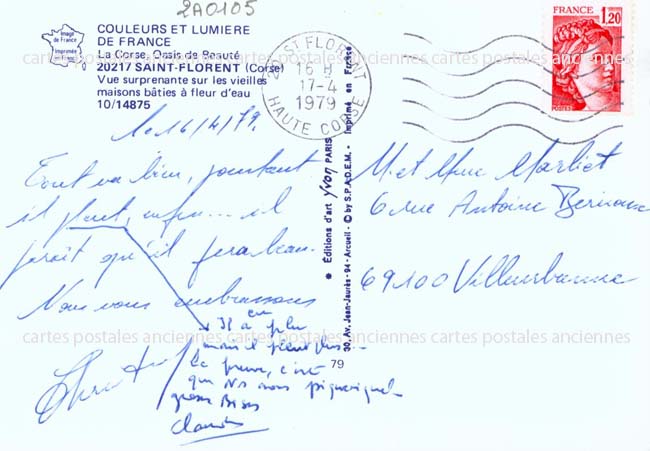 2A0105
COULEURS ET LUMIERE
DE FRANCE
La Corse, Oasis de Beauté
20217 SAINT-FLORENT (Corse)
Vue surprenante sur les vieilles
maisons bâties à fleur d'eau
10/14875
Image
de France
Imprimée
en France
ST FLORENT
16 H
17-4
1979
HAUTE CORSE
FRANCE
1,20
POSTES
cartes postales anciennes cartes postales anciennes cartes postales anciennes
le 16/4/79.
Tout va bien, pourtant
il pleut, enfin... il
paraît qu'il fera beau.
Nous vous embrassons
Il a
plu
mais il pleut plus...
La preuve, c'est
que Ns nous
grosses Bises
Claude
M. et Mme Marliet
6 rue Antoine
69100 Villeurbanne
cartes postales anciennes cartes postales anciennes cartes postales anciennes
Éditions d'art Yvon PARIS
30, Av. Jean-Jaurès - 94 - Arcueil - © by S.P.A.D.E.M. - Imprimé en France
79